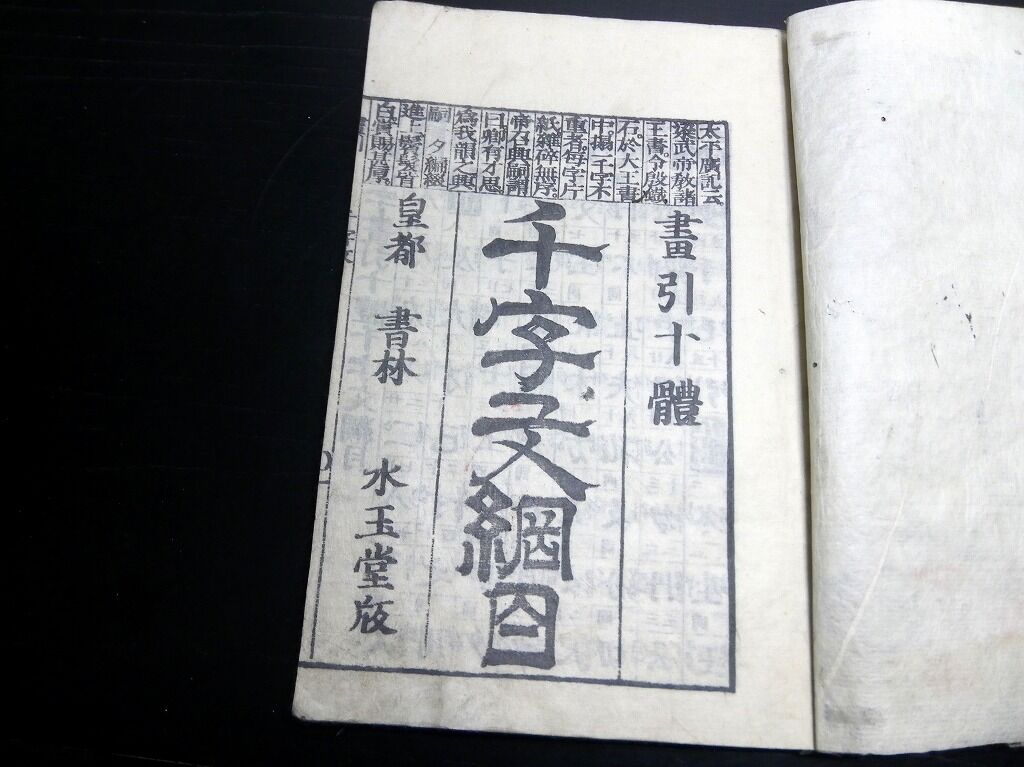 太平廣記云
梁武帝教諸
王書令殷鐵
石於大王書
中搨一千字不
重者每字片
紙雜碎無序。
帝召興嗣謂
曰卿有才思
為我韻之興
嗣一夕編綴
進上鬢髮皆
白賞賜甚厚。
畫引十體
千字文綱目
皇都 書林 水玉堂版